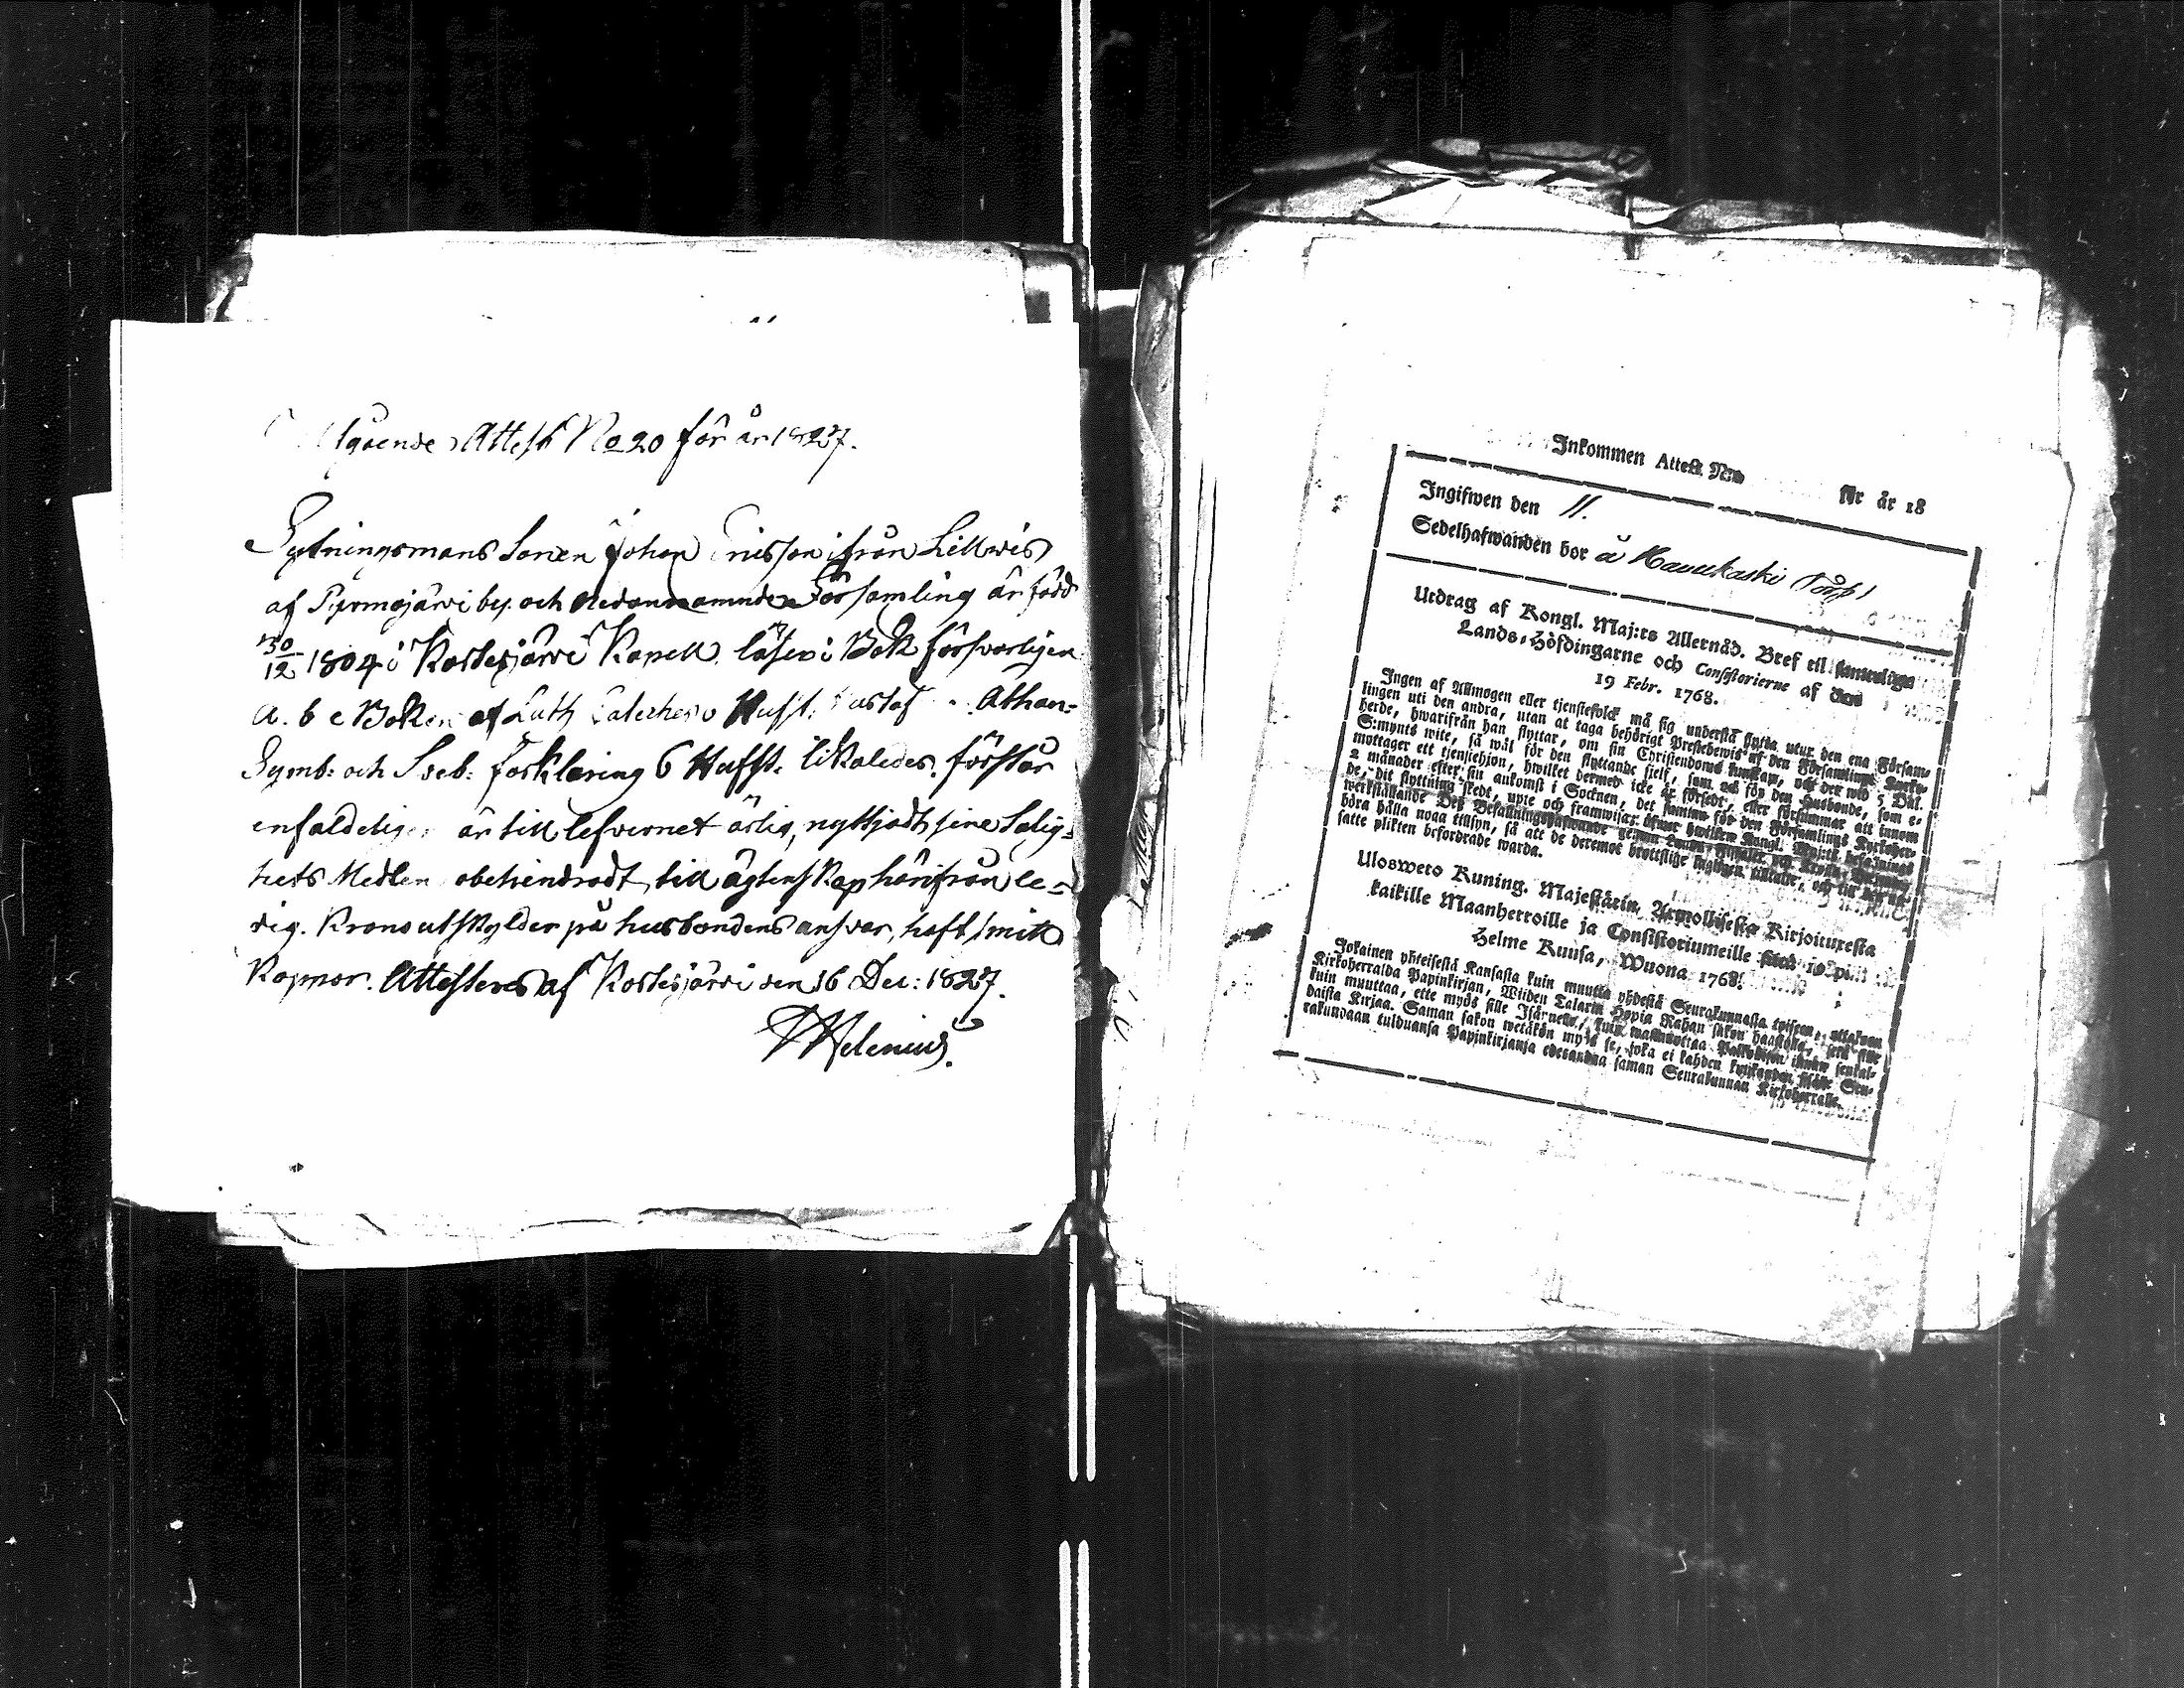 Attest No 20 för år 1827.
Sytningsmans Sonen Johan Ericsson ifrån Lillwis
af Pyrmäjärvi by och nedannämnde Församling är född
30/12 1804 i Koskisjärwi Kapell, läser i Bok försvarligen
a. b c Boken af Luth Hufst. Athan=
Symb: och Sveb: förklaring 6 Hufst. likaledes. förstår
enfaldeligen är till lefvernet ärlig, nyttjadt sine Salig=
hets Medlen obehindradt till ägtenskap härifrån le=
dig. Kronoutskylder på husbondens ansvar, haft
Koppor. Attesteras af Koskisjärwi den 16 Dec: 1827.
Inkommen Attest N:o för år 18
Ingifwen den 11.
Sedelhafwanden bor å Havukaski Torp
Utdrag af Kongl. Maj:ts Allernåd. Bref til samteliga
Lands-Höfdingarne och Consistorierne af den
19 Febr. 1768.
Ingen af Allmogen eller tjenstefolck må sig understå flytta utur den ena Försam-
lingen uti den andra, utan at taga behörigt Prestebewis af den Församlings Kyrko-
herde, hwarifrån han flyttar, om sin Christendoms kunskap, och det wid 5 Dal.
S:mynts wite, så wäl för den flyttande sjelf, som ock för den Husbonde, som e-
mottager ett tjenstehjon, hwilket dermed icke är försedt, eller försummar att innom
2 månader efter sin ankomst i Socknen, det samma för den Församlings Kyrkoher-
de, dit flyttning skedt, upte och framwisa: öfwer hwilken Kongl. Maj:ts befallnings
werkställande Dess Befallningshafwande genom
böra hålla noga tillsyn, så att de deremot brottslige
satte plikten befordrade warda.
Ulosweto Kuning. Majestätin, Armollisesta Kirjoituxesta
kaikille Maanherroille ja Consistoriumeille siitä 19 p.
Helme Kuusa, Wuona 1768.
Jokainen yhteisestä Kansasta kuin muutta yhdestä Seurakunnasta toiseen, ottakoon
Kirkoherralda Papinkirjan, Wiiden Talarin Hopia Rahan sakon haastolla, sekä sille
kuin muuttaa, ette myös sille Isännelle, kuin wastaanottaa Palkolisen ilman senkal-
daista Kirjaa. Saman sakon wetäkön myös se, joka ei kahden kuukauden sisälle Seu-
rakundaan tulduansa Papinkirjansa edesanna saman Seurakunnan Kirkoherralle.